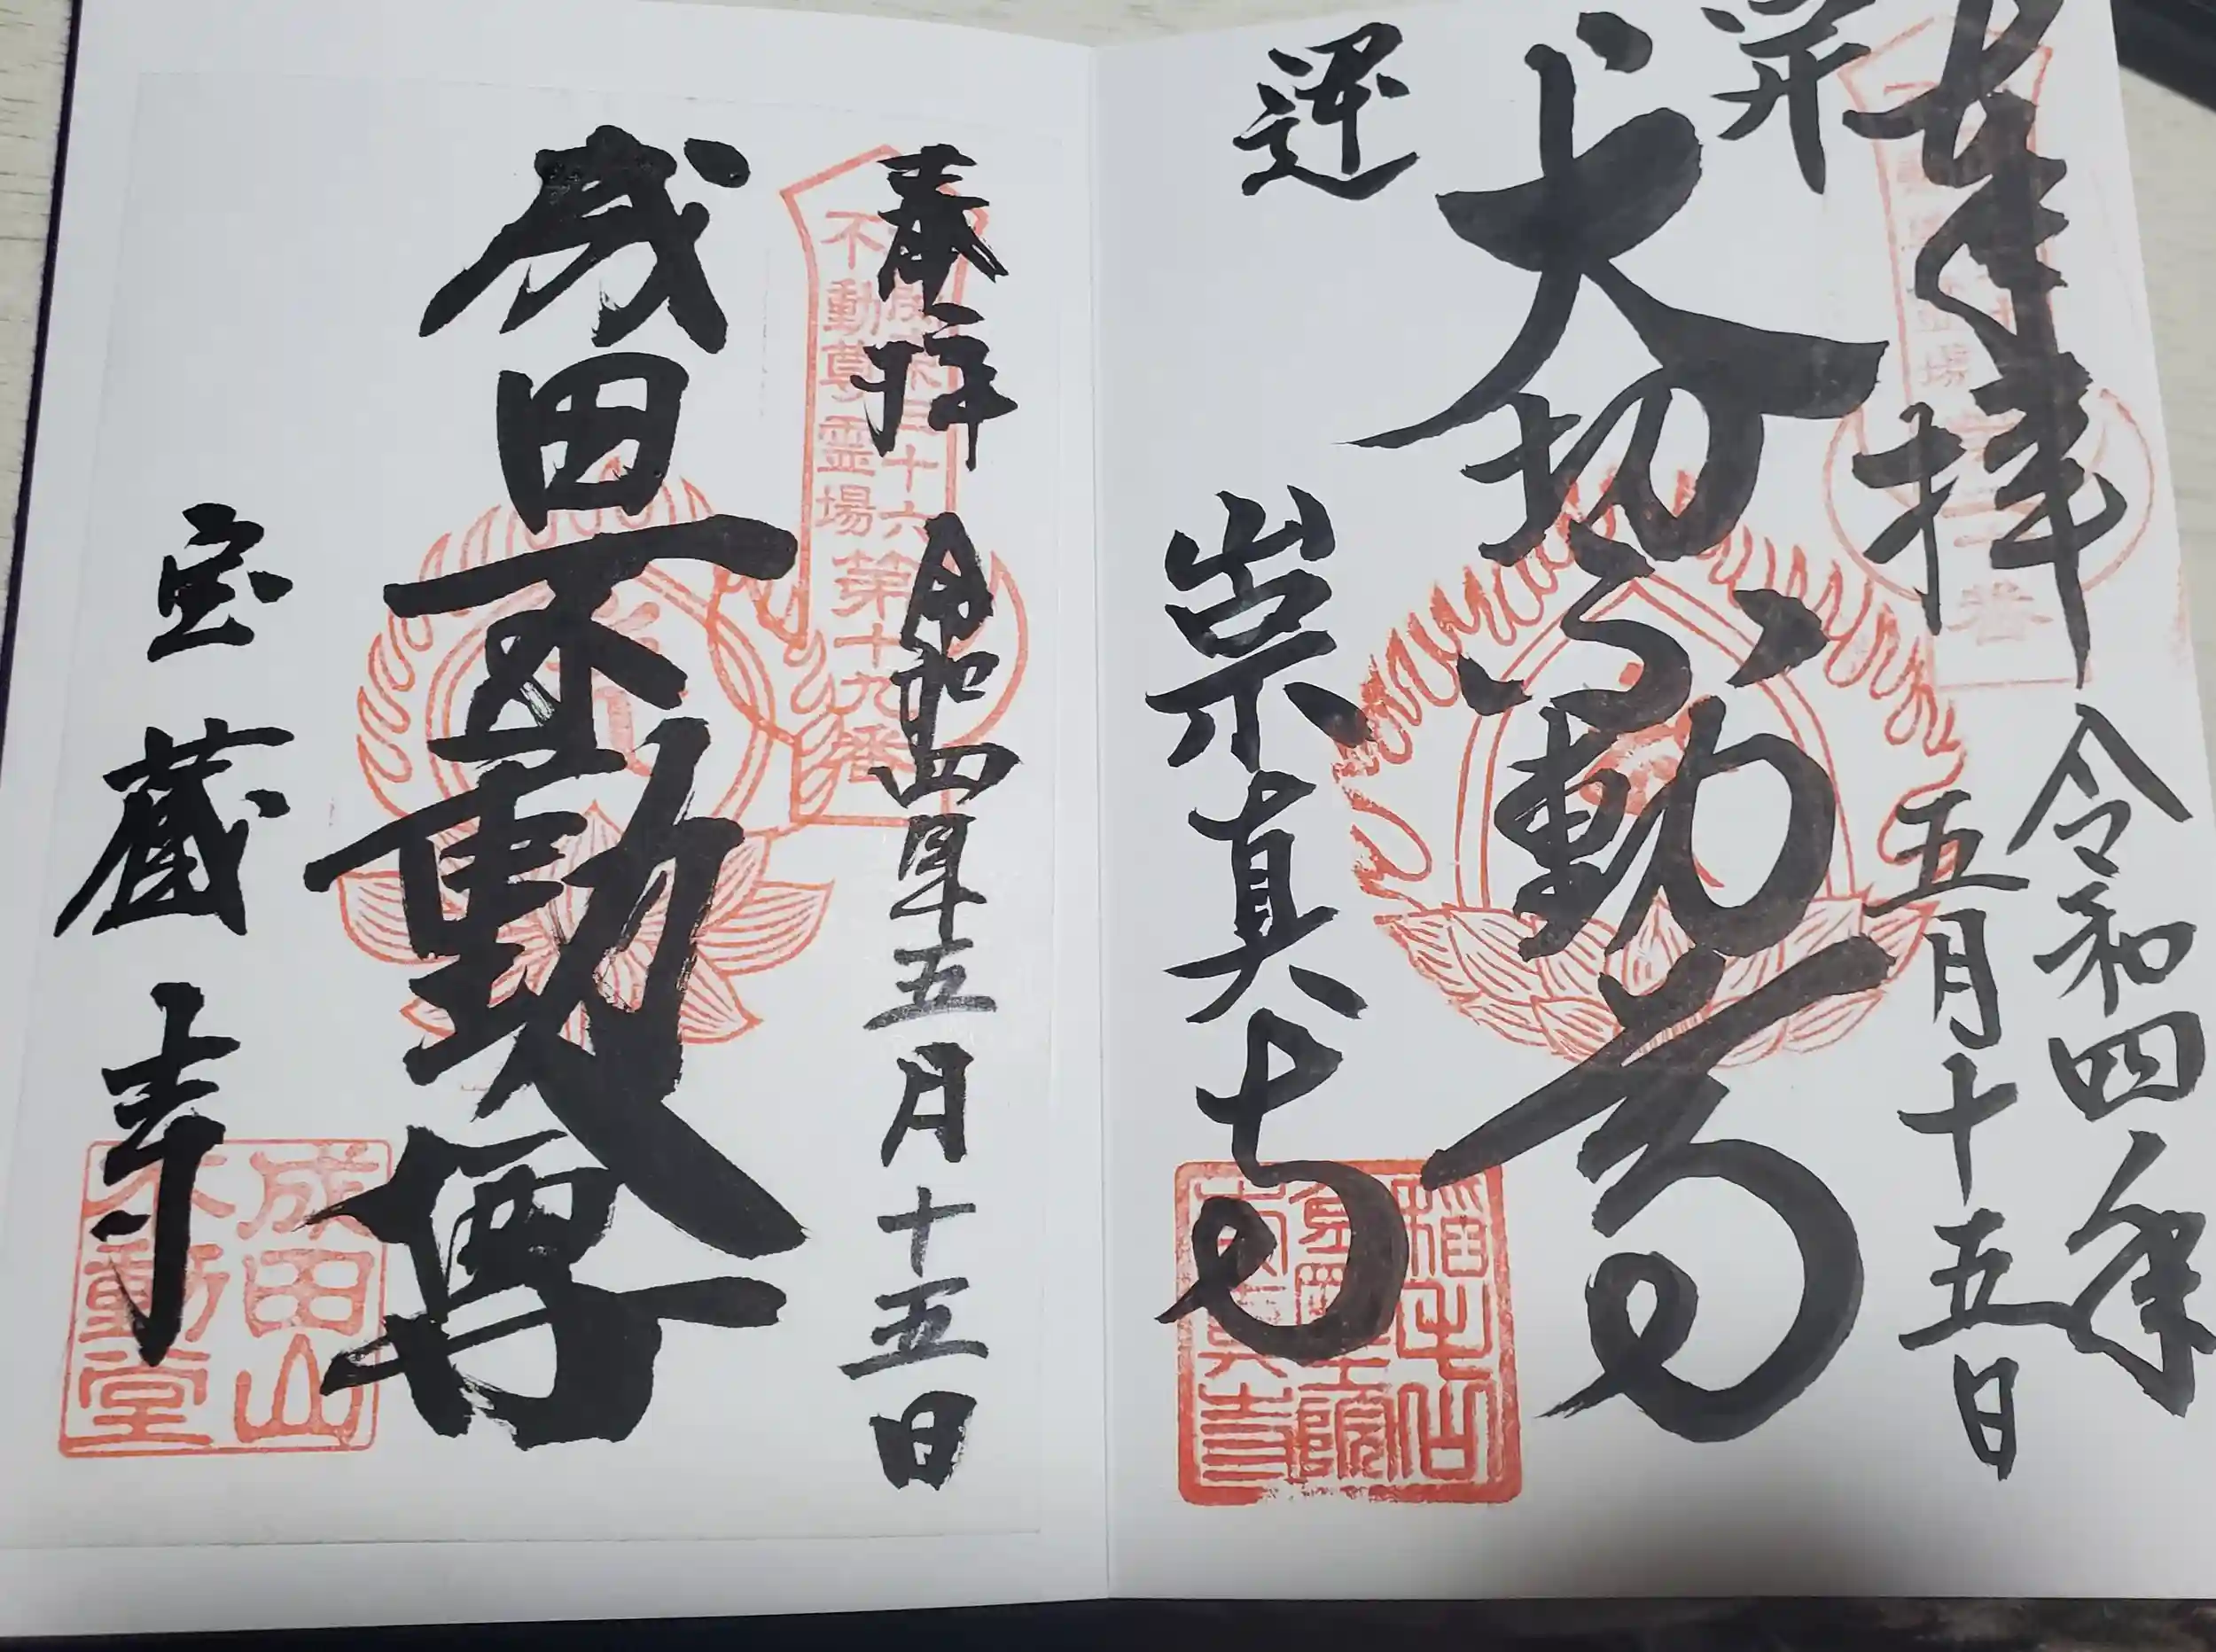 奉拝
令和四年
五月十五日
開
大切不動尊
運
崇真寺
奉拝
令和四年五月十五日
不動尊霊場
三十六
第十九番
成田不動尊
宝蔵寺
成田山
不動堂